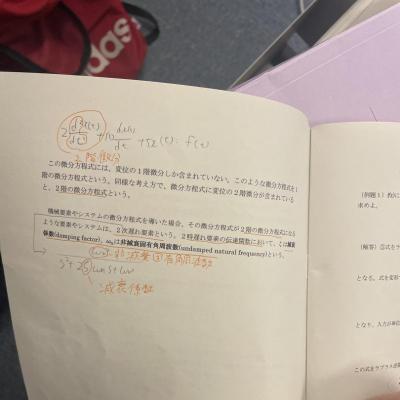 adidas
2 d²x(t)/dt² + 10 dx(t)/dt + 5x(t) = f(t)
2階微分
この微分方程式には、変位の1階微分しか含まれていない。このような微分方程式を1
階の微分方程式という。同様な考え方で、微分方程式に変位の2階微分が含まれている
と、2階の微分方程式という。
機械要素やシステムの微分方程式を導いた場合、その微分方程式が2階の微分方程式になる
ような要素やシステムは、2次遅れ要素という。2時遅れ要素の伝達関数において、ζは減衰
係数(damping factor)、ωₙは非減衰固有角周波数(undamped natural frequency)という。
ωn:非減衰固有角周波数
s²+2ζωn s+ωn
減衰係数
(例題1)
求めよ。
(解答)
となる。
となり、入力が単位
この式をラプラス逆